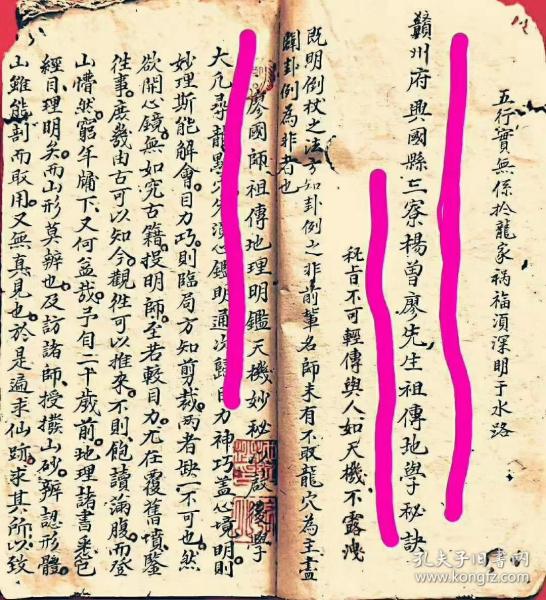 五行實無係於龍家禍福須深明于水路
贛州府興國縣三寮楊曾廖先生祖傳地學秘訣
秘旨不可輕傳與人如天機不露洩
既明倒杖之法方知卦例之非前輩名師未有不取龍穴為主盡
闢卦例為非者也
廖國師祖傳地理明鑑天機妙秘
大凡尋龍點穴先須心鑑明通次歸目力神巧蓋心境明則
妙理斯能解會目力巧則臨局方知剪裁两者缺一不可也然
欲開心鏡無如究古籍授明師至若較目力尤在覆舊墳鑒
徃事庶幾由古可以知今觀徃可以推來不則飽讀滿腹而登
山懵然窮年牖下又何益哉予自二十歲前地理諸書悉包
經目理明矣而山形莫辨也及訪諸師授撥山砂辨認形體
山雖能剖而取用又無真見也於是遍求仙跡求其所以致
孔夫子旧书网
www.kongfz.com